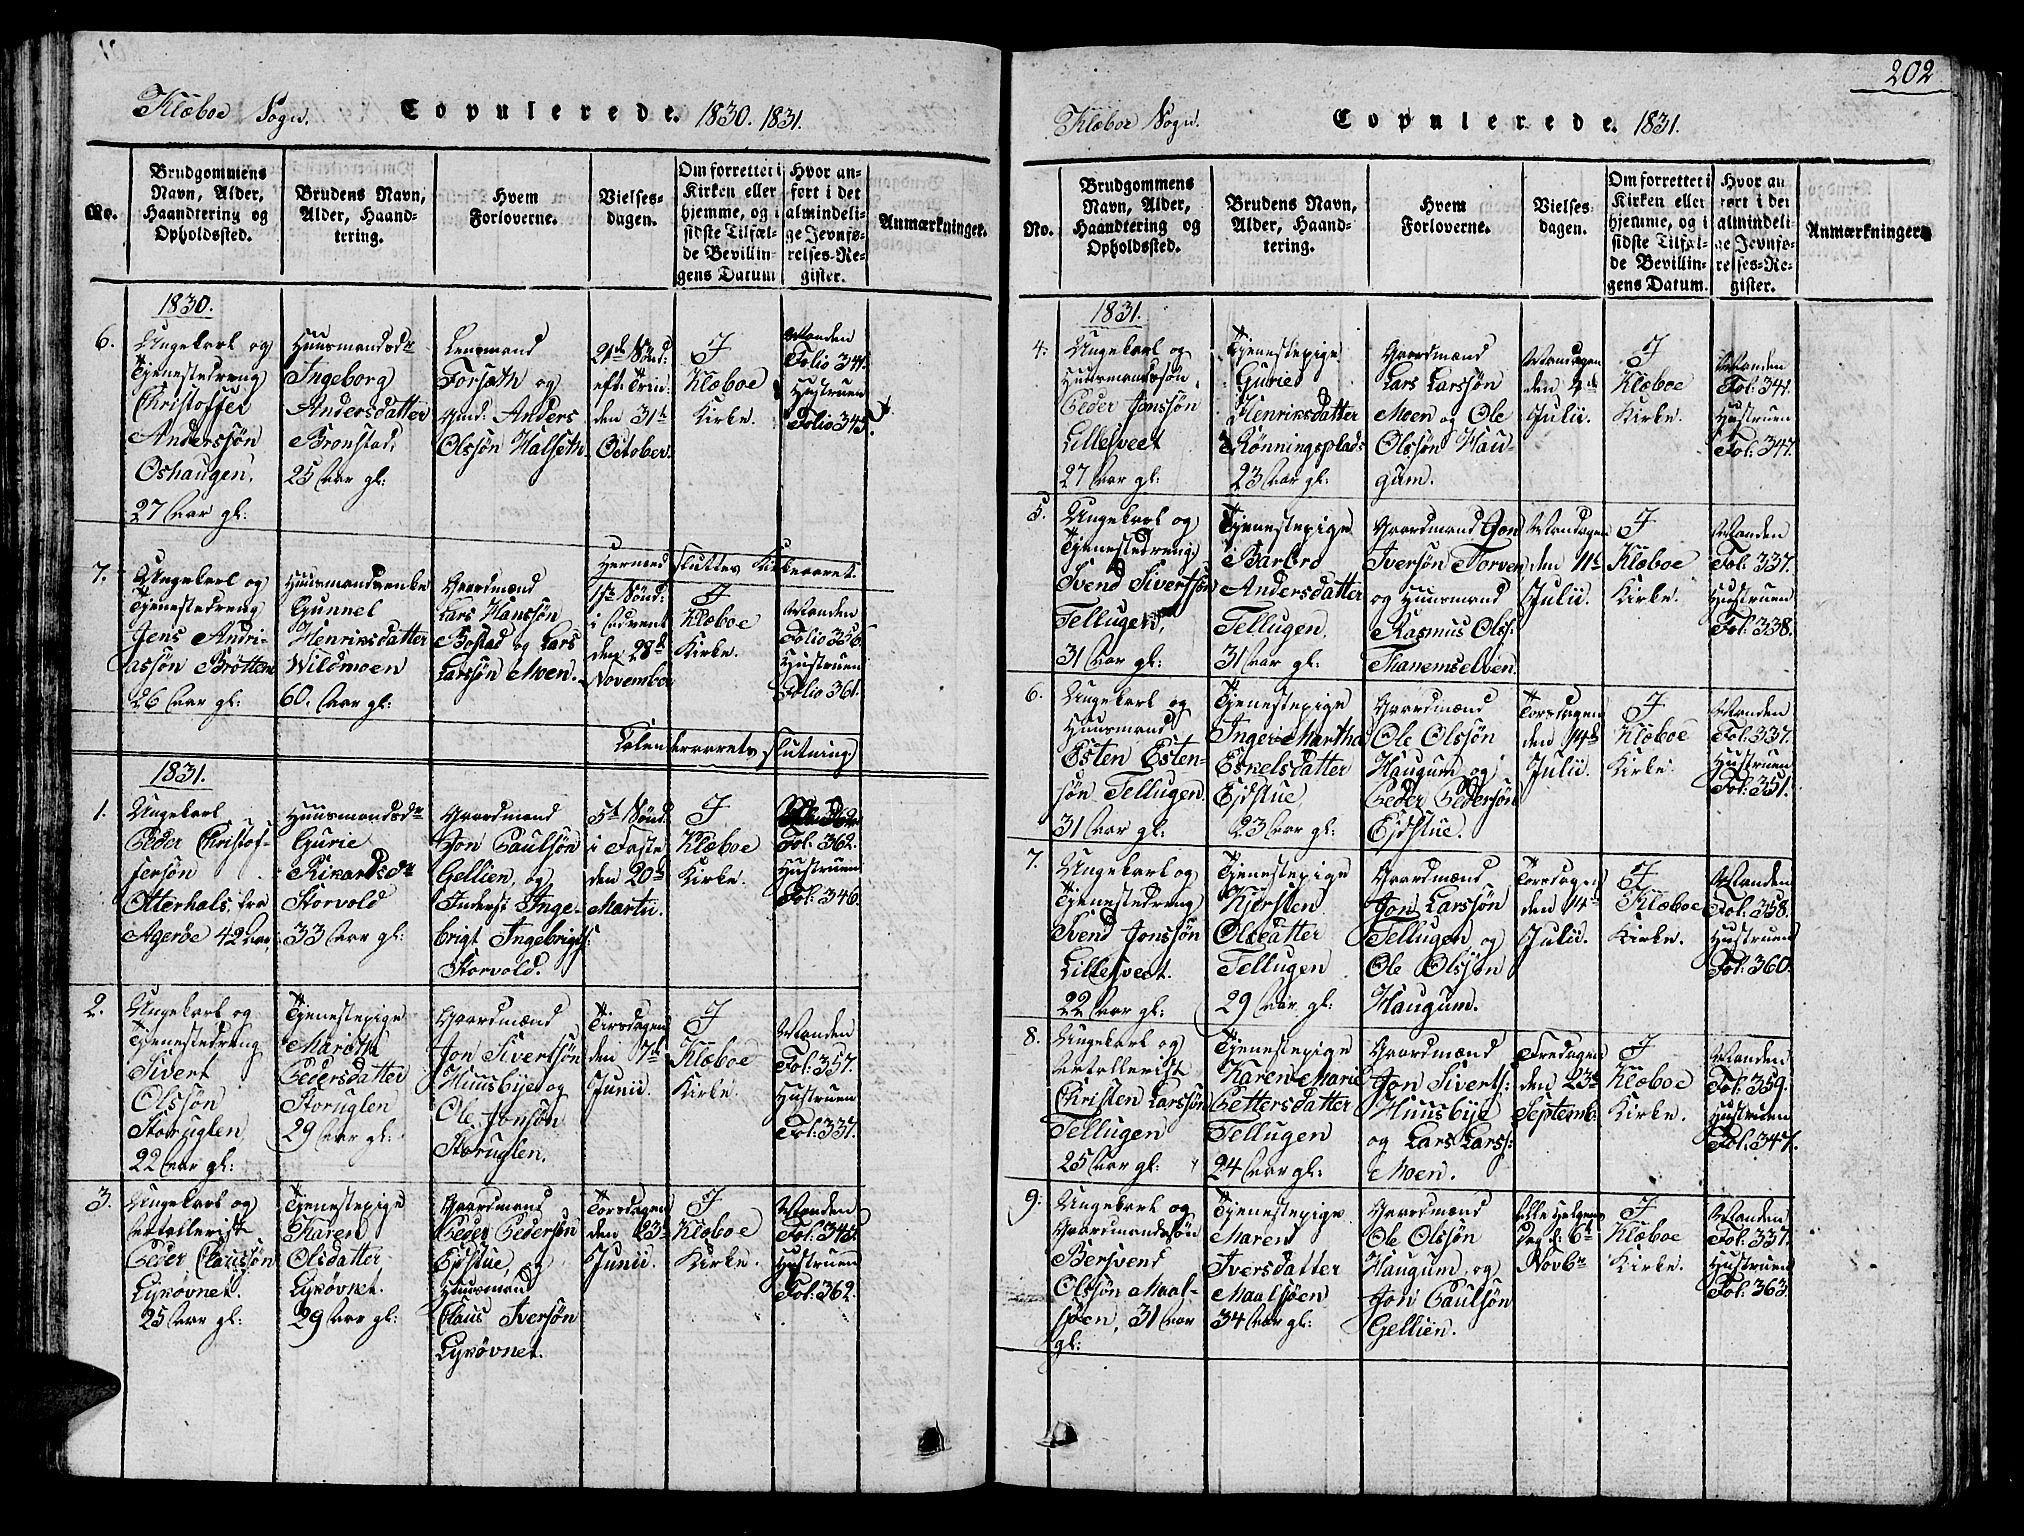 202
Klæboe Sogn. Copulerede. 1830. 1831.
No.
Brudgommens
Navn, Alder,
Haandtering og
Opholdssted.
Brudens Navn,
Alder, Haand-
tering.
Hvem
Forloverne.
Vielses-
dagen.
Om forrettet i
Kirken eller
hjemme, og i
sidste Tilfæl-
de Bevillin-
gens Datum
Hvor an-
ført i det
almindeli-
ge Jevnfø-
relses-Re-
gister.
Anmærkninger.
1830.
6.
Ungekarl og
Tjenestedreng
Christoffer
Anderssøn
Oshaugen,
27 Aar gl:
Huusmandsdr
Ingeborg
Andersdatter
Bronstad,
25 Aar gl:
Lensmand
Forsæth og
Gmd. Anders
Olssøn Halseth.
21de Sønd:
eft. Trin:
den 31te
October.
I
Klæboe
Kirke.
Manden
Folio 341.
Hustruen
Folio 345.
Hermed sluttes Kirkeaaret.
7.
Ungekarl og
Tjenestedreng
Jens Andri-
assøn Brøttem
26 Aar gl:
Huusmandsenke
Gunnel
Henriksdatter
Wildmoen
60. Aar gl:
Gaardmænd
Lars Hanssøn
Bostad og Lars
Larssøn Moen.
1ste Sønd:
i Advent
den 28de
November
I
Klæboe
Kirke.
Manden
Folio 356.
Hustruen
Folio 361.
Calenderaarets Slutning
1831.
1.
Ungekarl
Peder Christof-
fersøn
Otterhals, fra
Agerøe 42 Aar
Huusmandsdr
Gurie
Rikardsdr
Storvold
33 Aar gl:
Gaardmand
Jon Paulsøn
Gellien, og
Inderst Inge-
brigt Ingebrigts:
Storvold.
5te Sønd:
i Faste
den 20de
Martii.
I
Klæboe
Kirke.
Fol: 362.
Hustruen
Fol: 346.
2.
Ungekarl og
Tjenestedreng
Sivert
Olssøn
Storuglen,
22 Aar gl:
Tjenestepige
Marith
Pedersdatter
Storuglen
29 Aar gl:
Gaardmænd
Jon Sivertsøn
Huusbye og
Ole Jonsøn
Storuglen.
Tirsdagen
den 7de
Junii.
I
Klæboe
Kirke.
Manden
Fol: 357.
Hustruen
Fol: 337.
3.
Ungekarl og
Artollerist
Peder Claussøn
Lysøvnet.
25 Aar gl:
Tjenestepige
Karen
Olsdatter
Lysøvnet.
29 Aar gl:
Gaardmand
Peder Pedersøn
Ejdstue, og
Huusmand
Claus Iversøn
Lysøvnet.
Torsdagen
den 23de
Junii.
I
Klæboe
Kirke.
Manden
Fol: 345.
Hustruen
Fol: 362.
Klæboe Sogn. Copulerede. 1831.
No.
Brudgommens
Navn, Alder,
Haandtering og
Opholdssted.
Brudens Navn,
Alder, Haand-
tering.
Hvem
Forloverne.
Vielses-
dagen.
Om forrettet i
Kirken eller
hjemme, og i
sidste Tilfæl-
de Bevillin-
gens Datum.
Hvor an
ført i det
almindeli-
ge Jevnfø-
relses-Re-
gister.
Anmærkninger
1831.
4.
Ungekarl og
Huusmandssøn
Peder Jonssøn
Lillesveet
27 Aar gl:
Tjenestepige
Gurie
Henriksdatter
Rønningsplads
23 Aar gl:
Gaardmænd
Lars Larssøn
Moen og Ole
Olssøn Hau-
gum.
Mandagen
den 4de
Julii.
I
Klæboe
Kirke.
Manden
Fol: 341.
Hustruen
Fol: 347.
5.
Ungekarl og
Tjenestedreng
Svend Sivertssøn
Tellugen,
31 Aar gl:
Tjenestepige
Barbro
Andersdatter
Tellugen,
31 Aar gl:
Gaardmand Jon
Iversøn Torven,
og Huusmand
Rasmus Olss:
Thanemselven.
Mandagen
den 11te
Julii.
I
Klæboe
Kirke.
Manden
Fol: 337.
Hustruen
Fol: 338.
6.
Ungekarl og
Huusmand
Esten Esten-
søn Tellugen.
31 Aar gl:
Tjenestepige
Inger Martha
Eskelsdatter
Ejdstue,
23 Aar gl:
Gaardmænd
Ole Olssøn
Haugum og
Peder Pedersøn
Ejdstue.
Torsdagen
den 14de
Julii.
I
Klæboe
Kirke.
Manden
Fol: 337.
Hustruen
Fol: 351.
7.
Ungekarl og
Tjenestedreng
Svend Jonssøn
Lillesveet.
22 Aar gl:
Tjenestepige
Kjersten
Olsdatter
Tellugen
29 Aar gl:
Gaardmænd
Jon Larssøn
Tellugen og
Ole Olssøn
Haugum.
Torsdagen
den 14de
Julii.
I
Klæboe
Kirke.
Manden
Fol: 358.
Hustruen
Fol: 360.
8.
Ungekarl og
Artollerist
Christen Larssøn
Tellugen
25 Aar gl:
Tjenestepige
Karen Marie
Pettersdatter
Tellugen
24 Aar gl:
Gaardmænd
Jon Siverts:
Huusbye
og Lars Larss:
Moen.
Fredagen
den 23de
Septemb.
I
Klæboe
Kirke.
Manden
Fol: 359.
Hustruen
Fol: 347.
9.
Ungekarl og
Gaardmandssøn
Bersvend
Olssøn Maal-
søen, 31 Aar
gl:
Tjenestepige
Maren
Iversdatter
Maalsøen
34 Aar gl:
Gaardmænd
Ole Olssøn
Haugum, og
Jon Paulsøn
Gellien.
Alle Helgens
Dag d: 6te
Novbr
I
Klæboe
Kirke.
Manden
Fol: 337.
Hustruen
Fol: 363.